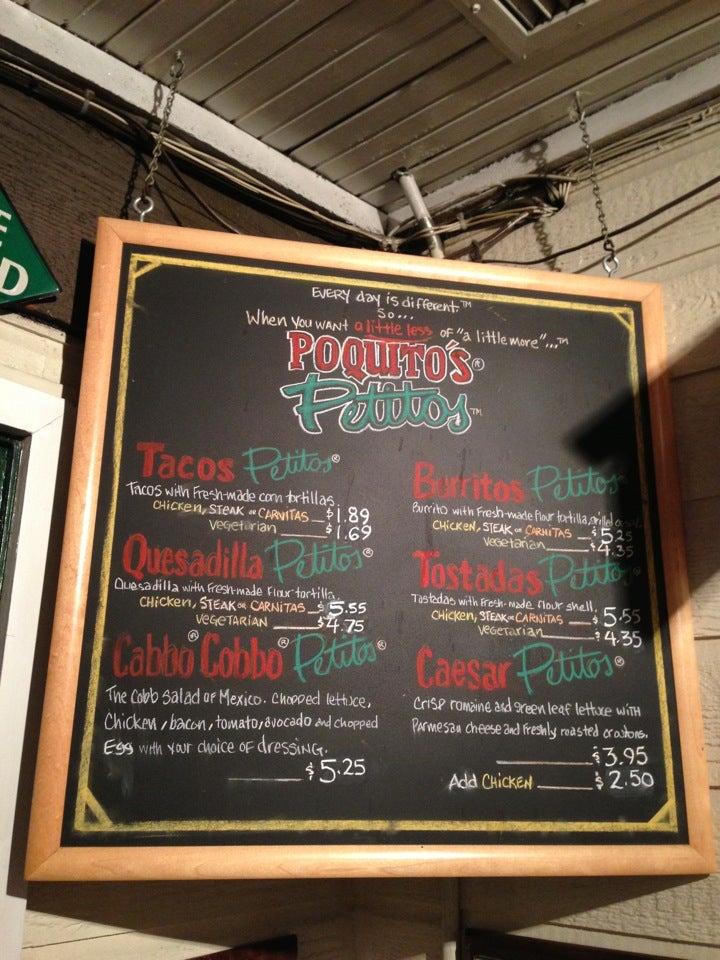 E
D
EVERY day is different.™
So...
When you want a little less of "a little more"...™
POQUITO'S®
Petitos™
Tacos Petitos®
Tacos with Fresh-made corn tortillas.
CHICKEN, STEAK or CARNITAS $1.89
Vegetarian $1.69
Quesadilla Petitos®
Quesadilla with Fresh-made Flour tortilla.
CHICKEN, STEAK or CARNITAS $5.55
VEGETARIAN $4.75
Cabbo® Cobbo® Petitos®
The Cobb Salad of Mexico. Chopped lettuce,
Chicken, bacon, tomato, avocado and chopped
Egg with your choice of dressing.
$5.25
Burritos Petitos®
Burrito with Fresh-made flour tortilla, grilled
CHICKEN, STEAK or CARNITAS $5.25
Vegetarian $4.35
Tostadas Petitos
Tostadas with Fresh-made flour shell.
CHICKEN, STEAK or CARNITAS $5.55
Vegetarian $4.35
Caesar Petitos®
Crisp romaine and green leaf lettuce with
Parmesan cheese and freshly roasted croutons.
$3.95
Add CHICKEN $2.50